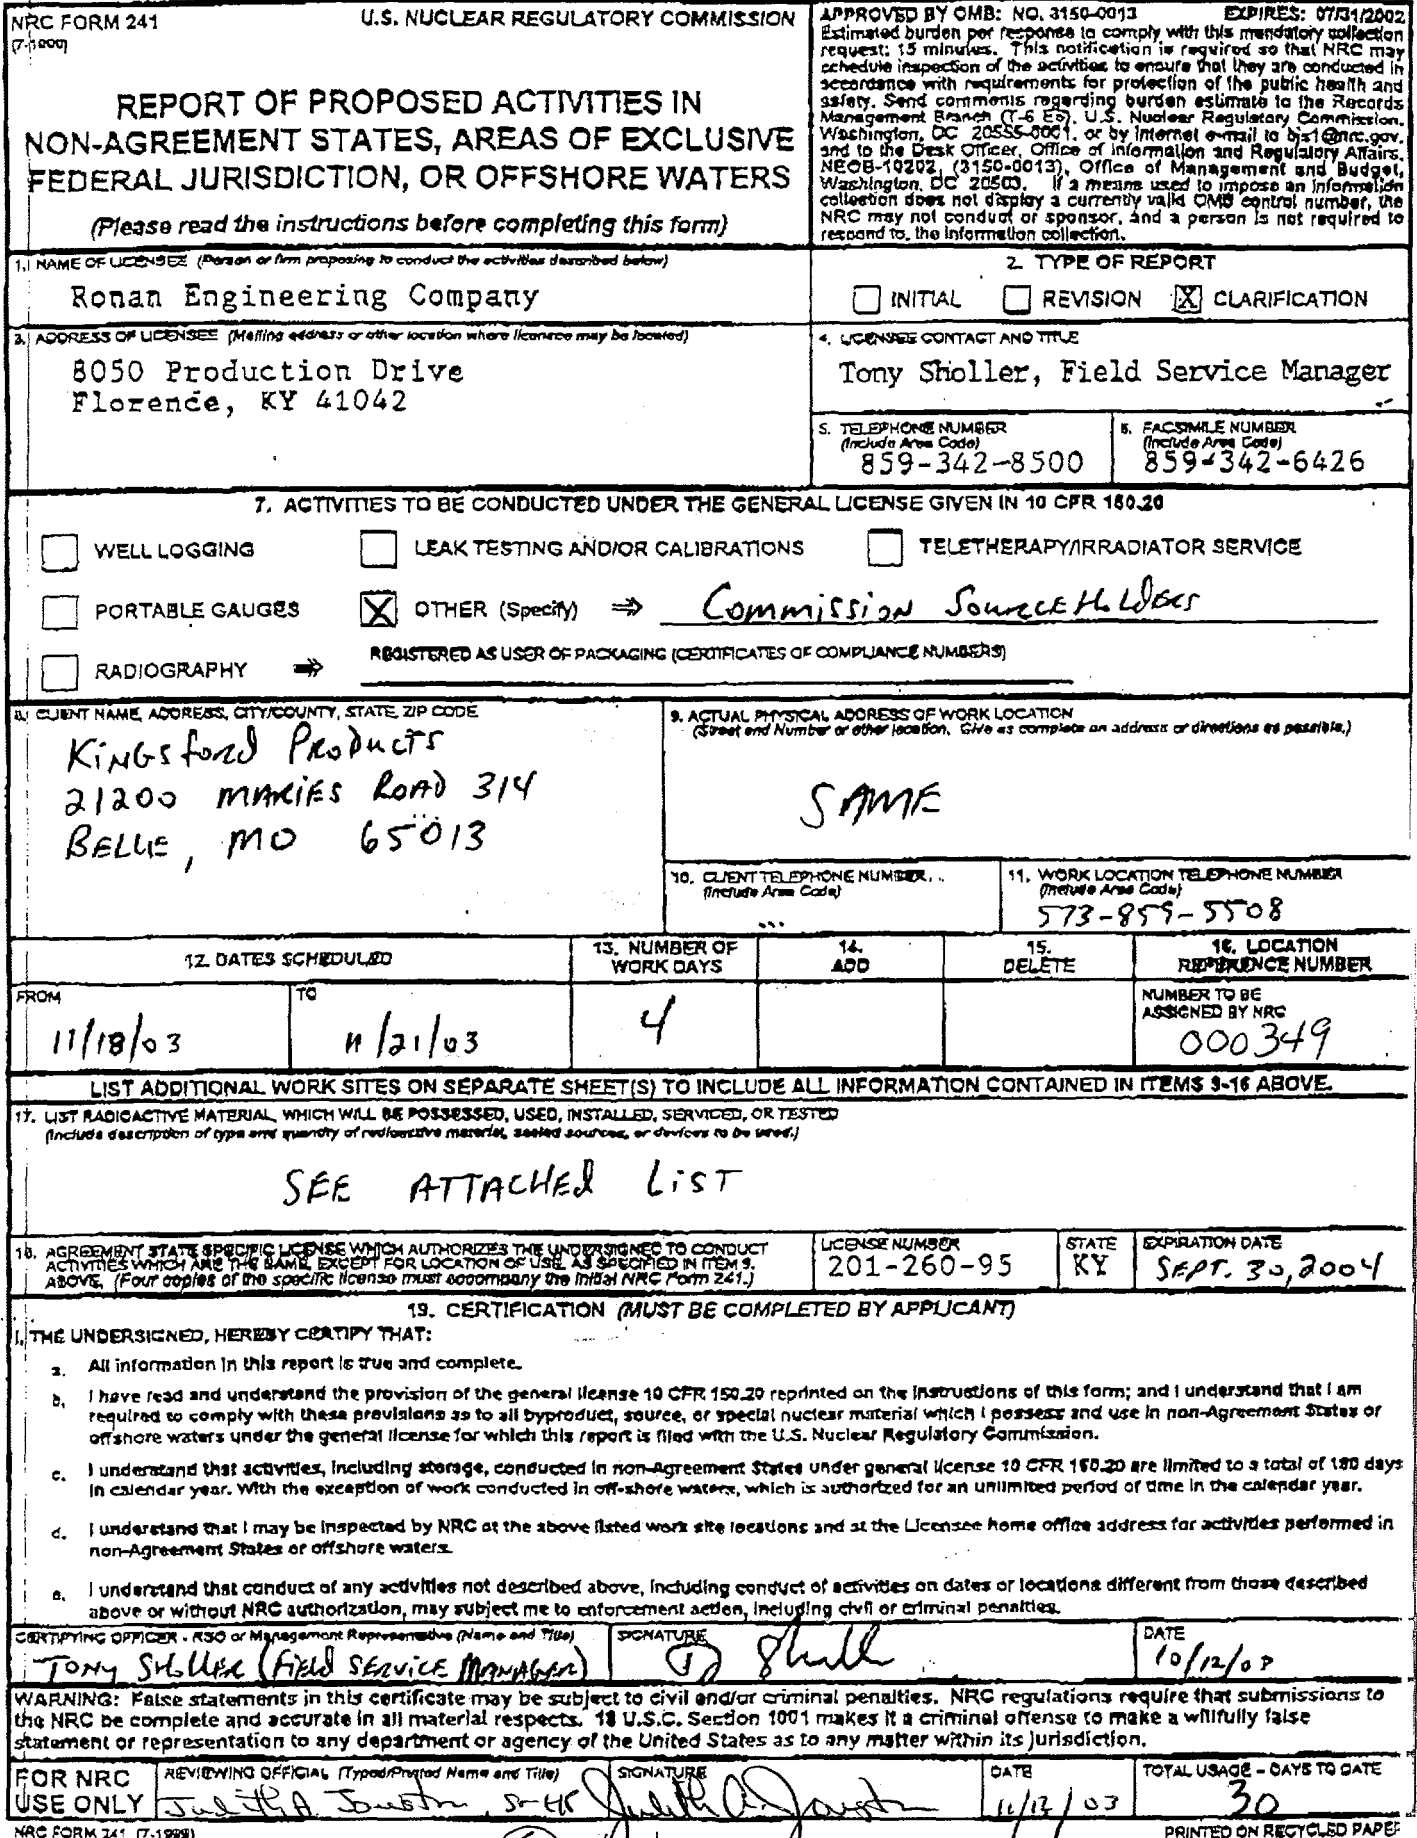 NRC FORM 241
(7-1999)
U.S. NUCLEAR REGULATORY COMMISSION
REPORT OF PROPOSED ACTIVITIES IN
NON-AGREEMENT STATES, AREAS OF EXCLUSIVE
FEDERAL JURISDICTION, OR OFFSHORE WATERS
(Please read the instructions before completing this form)
APPROVED BY OMB: NO. 3150-0013 EXPIRES: 07/31/2002
Estimated burden per response to comply with this mandatory collection
request: 15 minutes. This notification is required so that NRC may
schedule inspection of the activities to ensure that they are conducted in
accordance with requirements for protection of the public health and
safety. Send comments regarding burden estimate to the Records
Management Branch (T-6 E6), U.S. Nuclear Regulatory Commission,
Washington, DC 20555-0001, or by Internet e-mail to bjs1@nrc.gov,
and to the Desk Officer, Office of Information and Regulatory Affairs,
NEOB-10202, (3150-0013), Office of Management and Budget,
Washington, DC 20503. If a means used to impose an information
collection does not display a currently valid OMB control number, the
NRC may not conduct or sponsor, and a person is not required to
respond to, the information collection.
1. NAME OF LICENSEE (Person or firm proposing to conduct the activities described below)
Ronan Engineering Company
2. TYPE OF REPORT
INITIAL REVISION X CLARIFICATION
3. ADDRESS OF LICENSEE (Mailing address or other location where licensee may be located)
8050 Production Drive
Florence, KY 41042
4. LICENSEE CONTACT AND TITLE
Tony Sholler, Field Service Manager
5. TELEPHONE NUMBER
(Include Area Code)
859-342-8500
6. FACSIMILE NUMBER
(Include Area Code)
859-342-6426
7. ACTIVITIES TO BE CONDUCTED UNDER THE GENERAL LICENSE GIVEN IN 10 CFR 150.20
WELL LOGGING LEAK TESTING AND/OR CALIBRATIONS TELETHERAPY/IRRADIATOR SERVICE
PORTABLE GAUGES X OTHER (Specify) ⇒ Commission SourceHolders
RADIOGRAPHY ⇒ REGISTERED AS USER OF PACKAGING (CERTIFICATES OF COMPLIANCE NUMBERS)
8. CLIENT NAME, ADDRESS, CITY/COUNTY, STATE, ZIP CODE
Kingsford Products
21200 MARIES ROAD 314
BELLE, MO 65013
9. ACTUAL PHYSICAL ADDRESS OF WORK LOCATION
(Street and Number or other location. Give as complete an address or directions as possible.)
SAME
10. CLIENT TELEPHONE NUMBER
(Include Area Code)
11. WORK LOCATION TELEPHONE NUMBER
(Include Area Code)
573-859-5508
12. DATES SCHEDULED
13. NUMBER OF
WORK DAYS
14.
ADD
15.
DELETE
16. LOCATION
REFERENCE NUMBER
FROM
11/18/03
TO
11/21/03
4
NUMBER TO BE
ASSIGNED BY NRC
000349
LIST ADDITIONAL WORK SITES ON SEPARATE SHEET(S) TO INCLUDE ALL INFORMATION CONTAINED IN ITEMS 9-16 ABOVE.
17. LIST RADIOACTIVE MATERIAL, WHICH WILL BE POSSESSED, USED, INSTALLED, SERVICED, OR TESTED
(Include description of type and quantity of radioactive material, sealed sources, or devices to be used.)
SEE ATTACHED LIST
18. AGREEMENT STATE SPECIFIC LICENSE WHICH AUTHORIZES THE UNDERSIGNED TO CONDUCT
ACTIVITIES WHICH ARE THE SAME, EXCEPT FOR LOCATION OF USE, AS SPECIFIED IN ITEM 9.
ABOVE. (Four copies of the specific license must accompany the initial NRC Form 241.)
LICENSE NUMBER
201-260-95
STATE
KY
EXPIRATION DATE
SEPT. 30, 2004
19. CERTIFICATION (MUST BE COMPLETED BY APPLICANT)
I, THE UNDERSIGNED, HEREBY CERTIFY THAT:
a. All information in this report is true and complete.
b. I have read and understand the provision of the general license 10 CFR 150.20 reprinted on the instructions of this form; and I understand that I am
required to comply with these provisions as to all byproduct, source, or special nuclear material which I possess and use in non-Agreement States or
offshore waters under the general license for which this report is filed with the U.S. Nuclear Regulatory Commission.
c. I understand that activities, including storage, conducted in non-Agreement States under general license 10 CFR 150.20 are limited to a total of 180 days
in calendar year. With the exception of work conducted in off-shore waters, which is authorized for an unlimited period of time in the calendar year.
d. I understand that I may be inspected by NRC at the above listed work site locations and at the Licensee home office address for activities performed in
non-Agreement States or offshore waters.
e. I understand that conduct of any activities not described above, including conduct of activities on dates or locations different from those described
above or without NRC authorization, may subject me to enforcement action, including civil or criminal penalties.
CERTIFYING OFFICER - RSO or Management Representative (Name and Title)
TONY SHOLLER (FIELD SERVICE MANAGER)
SIGNATURE
DATE
WARNING: False statements in this certificate may be subject to civil and/or criminal penalties. NRC regulations require that submissions to
the NRC be complete and accurate in all material respects. 18 U.S.C. Section 1001 makes it a criminal offense to make a willfully false
statement or representation to any department or agency of the United States as to any matter within its jurisdiction.
FOR NRC
USE ONLY
REVIEWING OFFICIAL (Typed/Printed Name and Title)
Judith A. Joustra, Sr HP
SIGNATURE
Judith A. Joustra
DATE
11/12/03
TOTAL USAGE - DAYS TO DATE
30
NRC FORM 241 (7-1999)
PRINTED ON RECYCLED PAPER